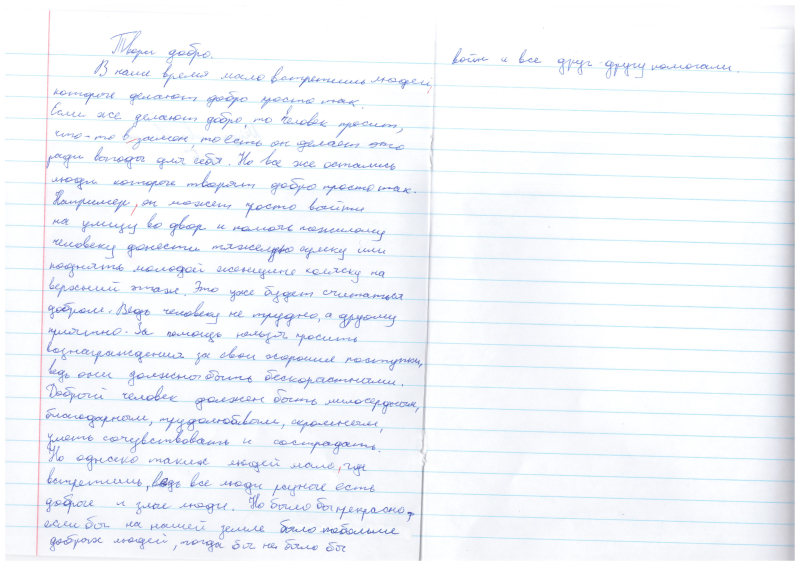 Твори добро.
В наше время мало встретишь людей,
которые делают добро просто так.
Если же делают добро, то человек просит,
что-то в замен, то есть он делает это
ради выгоды для себя. Но все же остались
люди которые творят добро просто так.
Например, он может просто выйти
на улицу во двор и помочь пожилому
человеку донести тяжелую сумку или
поднять молодой женщине коляску на
верхний этаж. Это уже будет считаться
добром. Ведь человеку не трудно, а другому
приятно. За помощь нельзя просить
вознаграждения за свои хорошие поступки,
ведь они должны быть бескорастными.
Добрый человек должен быть милосердным,
благодарным, трудолюбивым, скромным,
уметь сочувствовать и сострадать.
Но однако таких людей мало, где
встретишь, ведь все люди разные есть
добрые и злые люди. Но было бы прекрасно,
если бы на нашей земле было побольше
добрых людей, тогда бы не было бы
войн и все друг другу помогали.